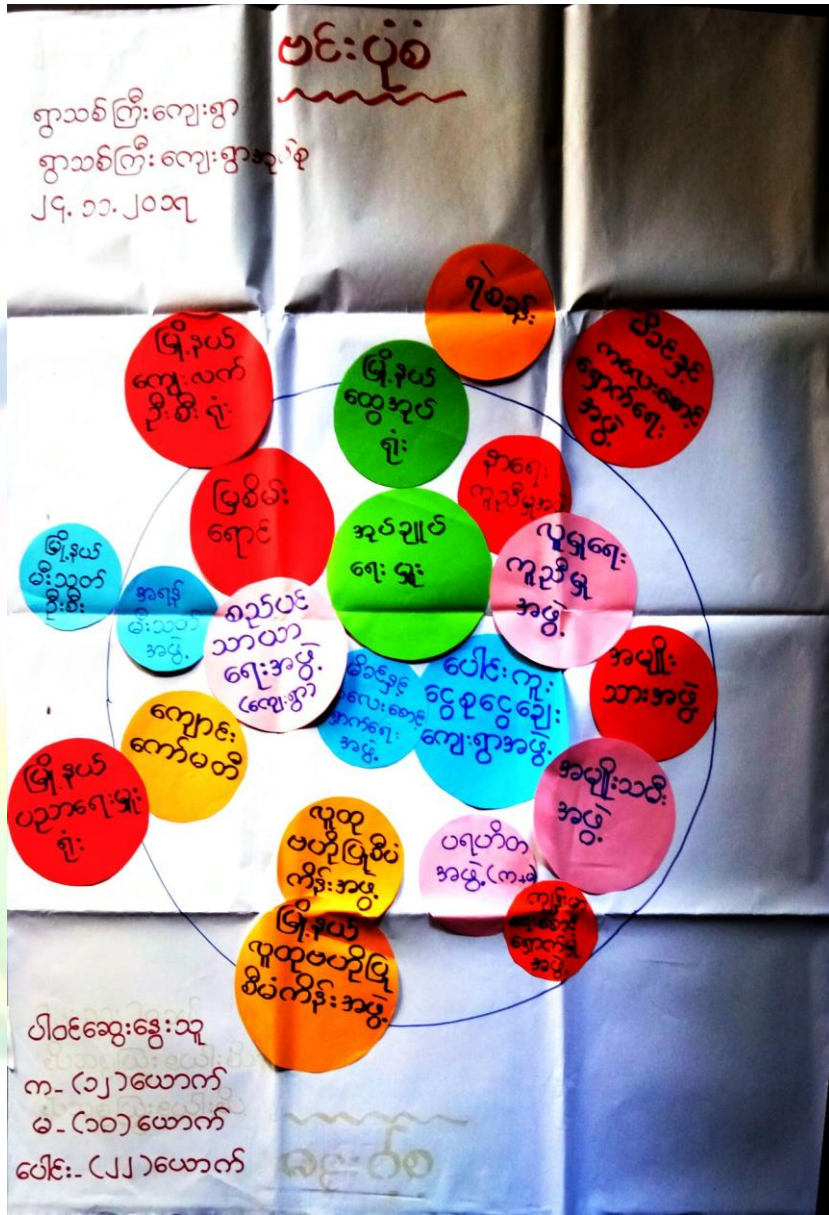 ဗင်းပုံစံ
ရွာသစ်ကြီးကျေးရွာ
ရွာသစ်ကြီးကျေးရွာအုပ်စု
၂၄.၁၁.၂၀၁၇
ရဲစခန်း
မြို့နယ်
ကျေးလက်
ဦးစီးရုံး
မြို့နယ်
ထွေအုပ်
ရုံး
မိခင်နှင့်
ကလေးစောင့်
ရှောက်ရေး
အဖွဲ့
နာရေး
ကူညီမှုအဖွဲ့
မြစိမ်း
ရောင်
အုပ်ချုပ်
ရေးမှူး
လူမှုရေး
ကူညီမှု
အဖွဲ့
မြို့နယ်
မီးသတ်
ဦးစီး
အရန်
မီးသတ်
အဖွဲ့
စည်ပင်
သာယာ
ရေးအဖွဲ့
(ကျေးရွာ)
မိခင်နှင့်
ကလေးစောင့်
ရှောက်ရေး
အဖွဲ့
ပေါင်းကူး
ငွေစုငွေချေး
ကျေးရွာအဖွဲ့
အမျိုး
သားအဖွဲ့
ကျောင်း
ကော်မတီ
မြို့နယ်
ပညာရေးမှူး
ရုံး
အမျိုးသမီး
အဖွဲ့
လူထု
ဗဟိုပြုစီမံ
ကိန်းအဖွဲ့
ပရဟိတ
အဖွဲ့(က+မ)
ကျန်းမာ
ရေးစောင့်
ရှောက်မှု
အဖွဲ့
မြို့နယ်
လူထုဗဟိုပြု
စီမံကိန်းအဖွဲ့
ပါဝင်ဆွေးနွေးသူ
က-(၁၂)ယောက်
မ-(၁၀)ယောက်
ပေါင်း-(၂၂)ယောက်